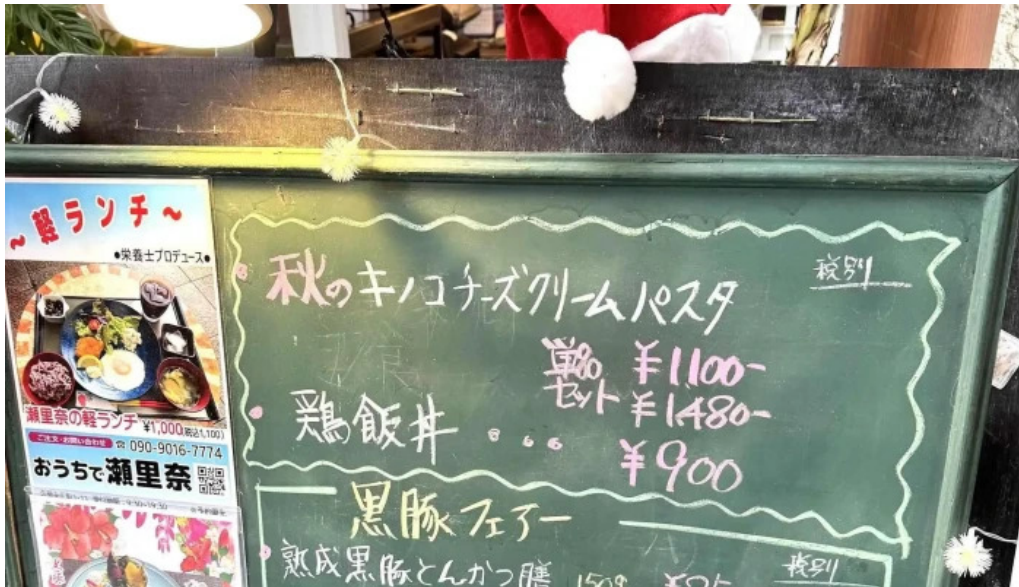 ～軽ランチ～
●栄養士プロデュース●
瀬里奈の軽ランチ ¥1,000(税込1,100)
ご注文・お問い合わせ ☎ 090-9016-7774
おうちで瀬里奈
秋のキノコチーズクリームパスタ
税別
単品 ¥1100-
セット ¥1,480-
鶏飯丼 ...
¥900
黒豚フェアー
熟成黒豚とんかつ膳 150g
税別